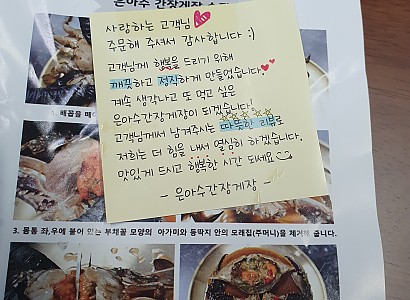 은아수 간장게장
사랑하는 고객님
주문해 주셔서 감사합니다 :)
고객님께 행복을 드리기 위해
깨끗하고 정직하게 만들었습니다
계속 생각나고 또 먹고 싶은
은아수간장게장이 되겠습니다!
고객님께서 남겨주시는 따뜻한 리뷰로
저희는 더 힘을 내서 열심히 하겠습니다.
맛있게 드시고 행복한 시간 되세요
- 은아수간장게장 -
3. 몸통 좌,우에 붙어 있는 부채꼴 모양의 아가미와 등딱지 안의 모래집(주머니)을 제거해 줍니다.